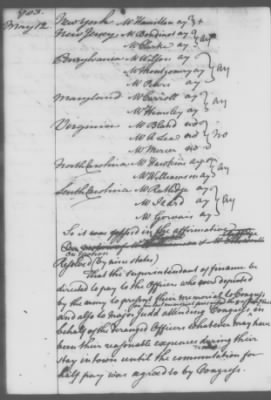 1783.
May 12. New York Mr Hamilton ay }+
New Jersey Mr Boudinot ay } ay
Mr Clarke ay
Pennsylvania Mr Wilson ay
Mr Montgomery ay } ay
Mr Peters ay
Maryland Mr Carroll ay } ay
Mr Hemsley ay
Virginia Mr Bland no
Mr A. Lee no } no
Mr Mercer no
North Carolina Mr Hawkins ay } ay
Mr Williamson ay
South Carolina Mr Rutledge ay
Mr Izard ay } ay
Mr Gervais ay
So it was resolved in the affirmative
On motion
Resolved (by nine states)
That the superintendant of finance be
directed to pay to the Officers who were deputed
by the army to present their memorial to Congress
and also to Major Judd attending Congress in
behalf of the deranged Officers whatever may have
been their reasonable expences during their
stay in town until the commutation for
half pay was agreed to by Congress.